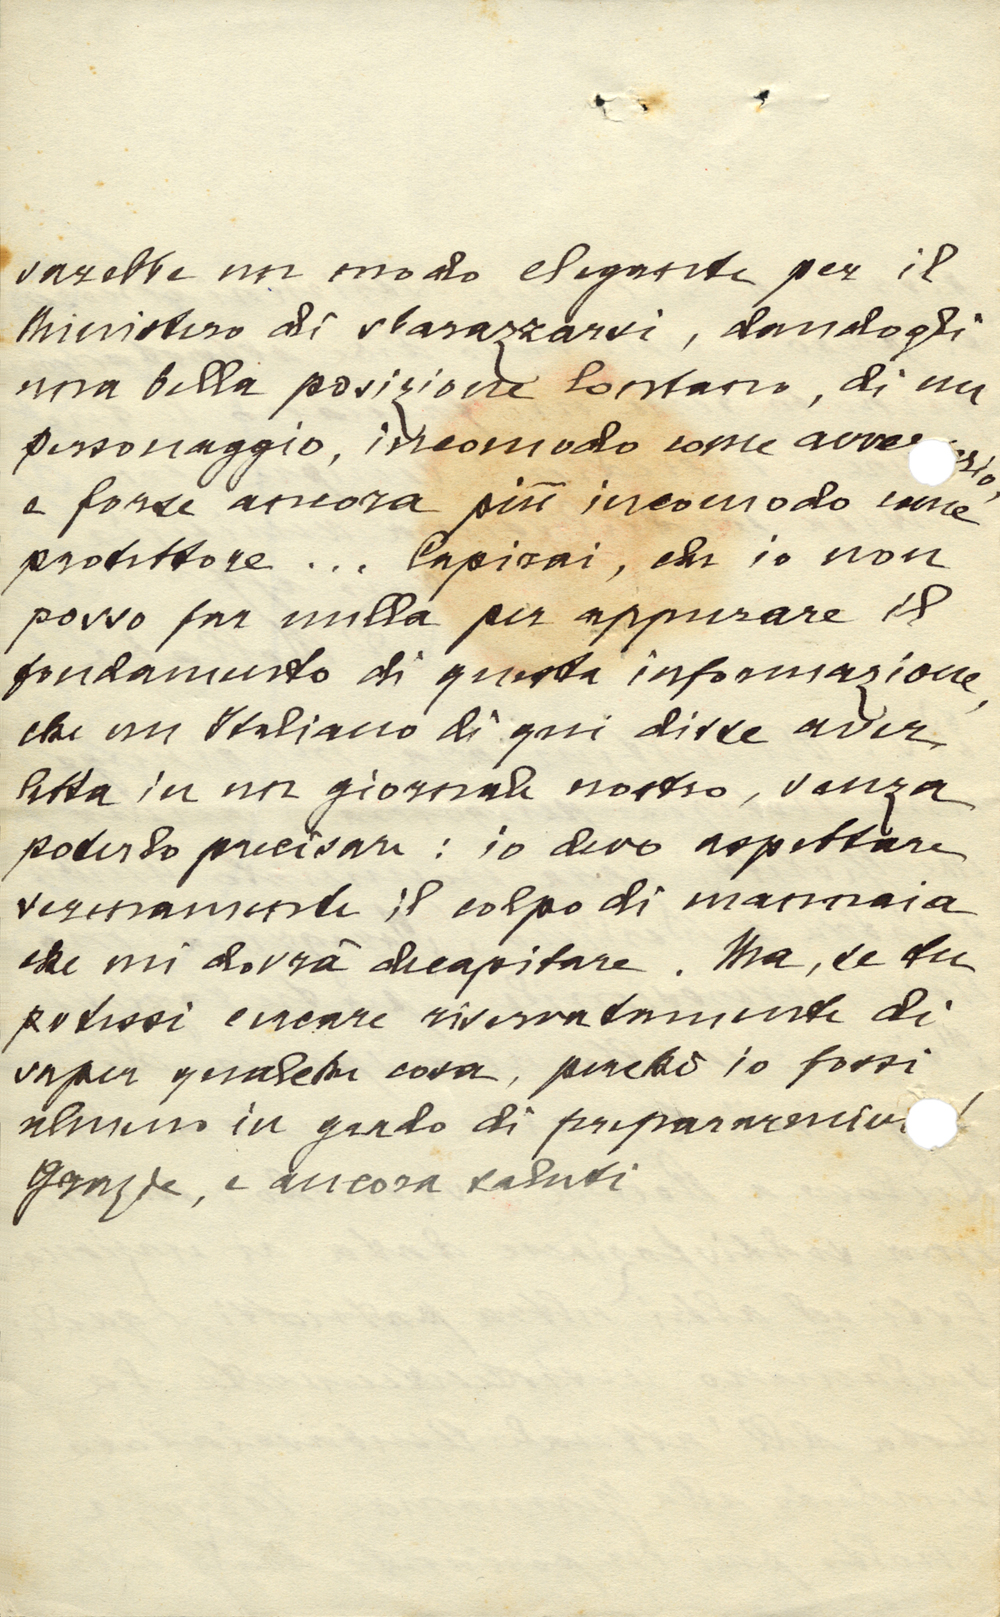 sarebbe un modo elegante per il
Ministero di sbarazzarsi, dandogli
una bella posizione lontano, di un
personaggio, incomodo come avve rio,
e forse ancora più incomodo come
protettore ... Capirai, che io non
posso far nulla per appurare il
fondamento di questa informazione,
che un Italiano di qui disse aver
letta in un giornale nostro, senza
poterlo precisare: io devo aspettare
serenamente il colpo di mannaia
che mi dovrà decapitare. Ma, se tu
potessi cercare riservatamente di
saper qualche cosa, perché io fossi
almeno in grado di prepararmivi!
Grazie, e ancora saluti